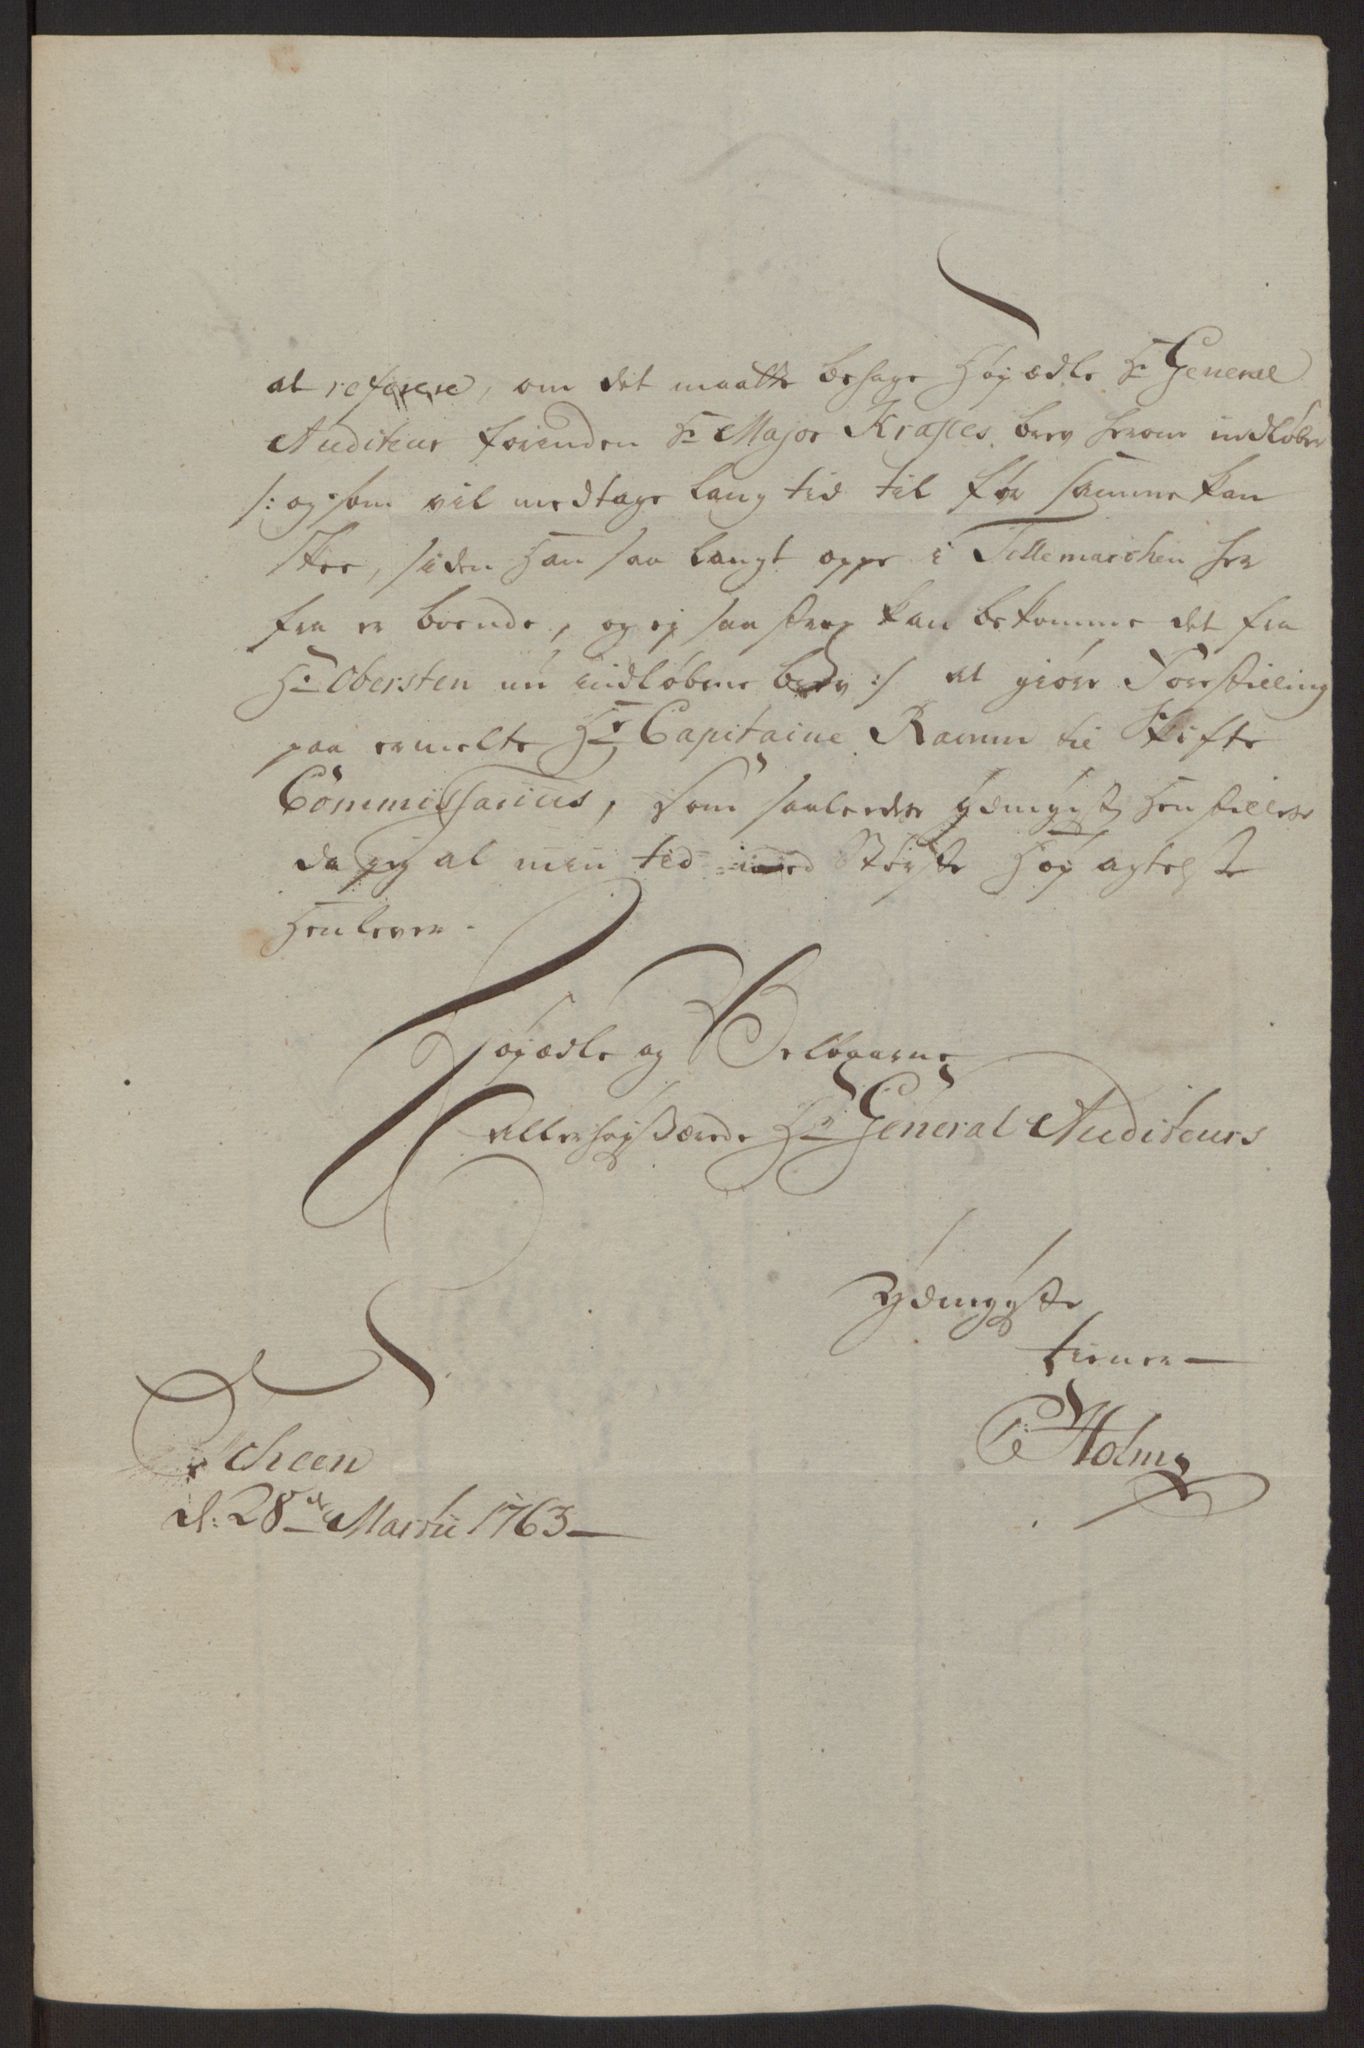 at referere, om det maatte behage Høyædle Hr General
Auditeur forinden Hr Major Krafts brev herom indløber
/: og som vil medtage lang tid til før samme kan
skee, siden Han saa langt oppe i Tellemarchen her
fra er boende, og ej saa strax kan bekomme det fra
Hr Obersten nu indløbene brev :/ at giøre Forestilling
paa ermelte Hr Capitaine Ramm til Skifte
Commissarius, som saaledes ydmygst Henstilles
da jeg al min tid med Største Høyagtelse
Henlever.
Høyædle og Velbaarne
Allerhøystærede Hr General Auditeurs
Ydmygste
tiener
C Holm
Scheen
d: 28de Martii 1763